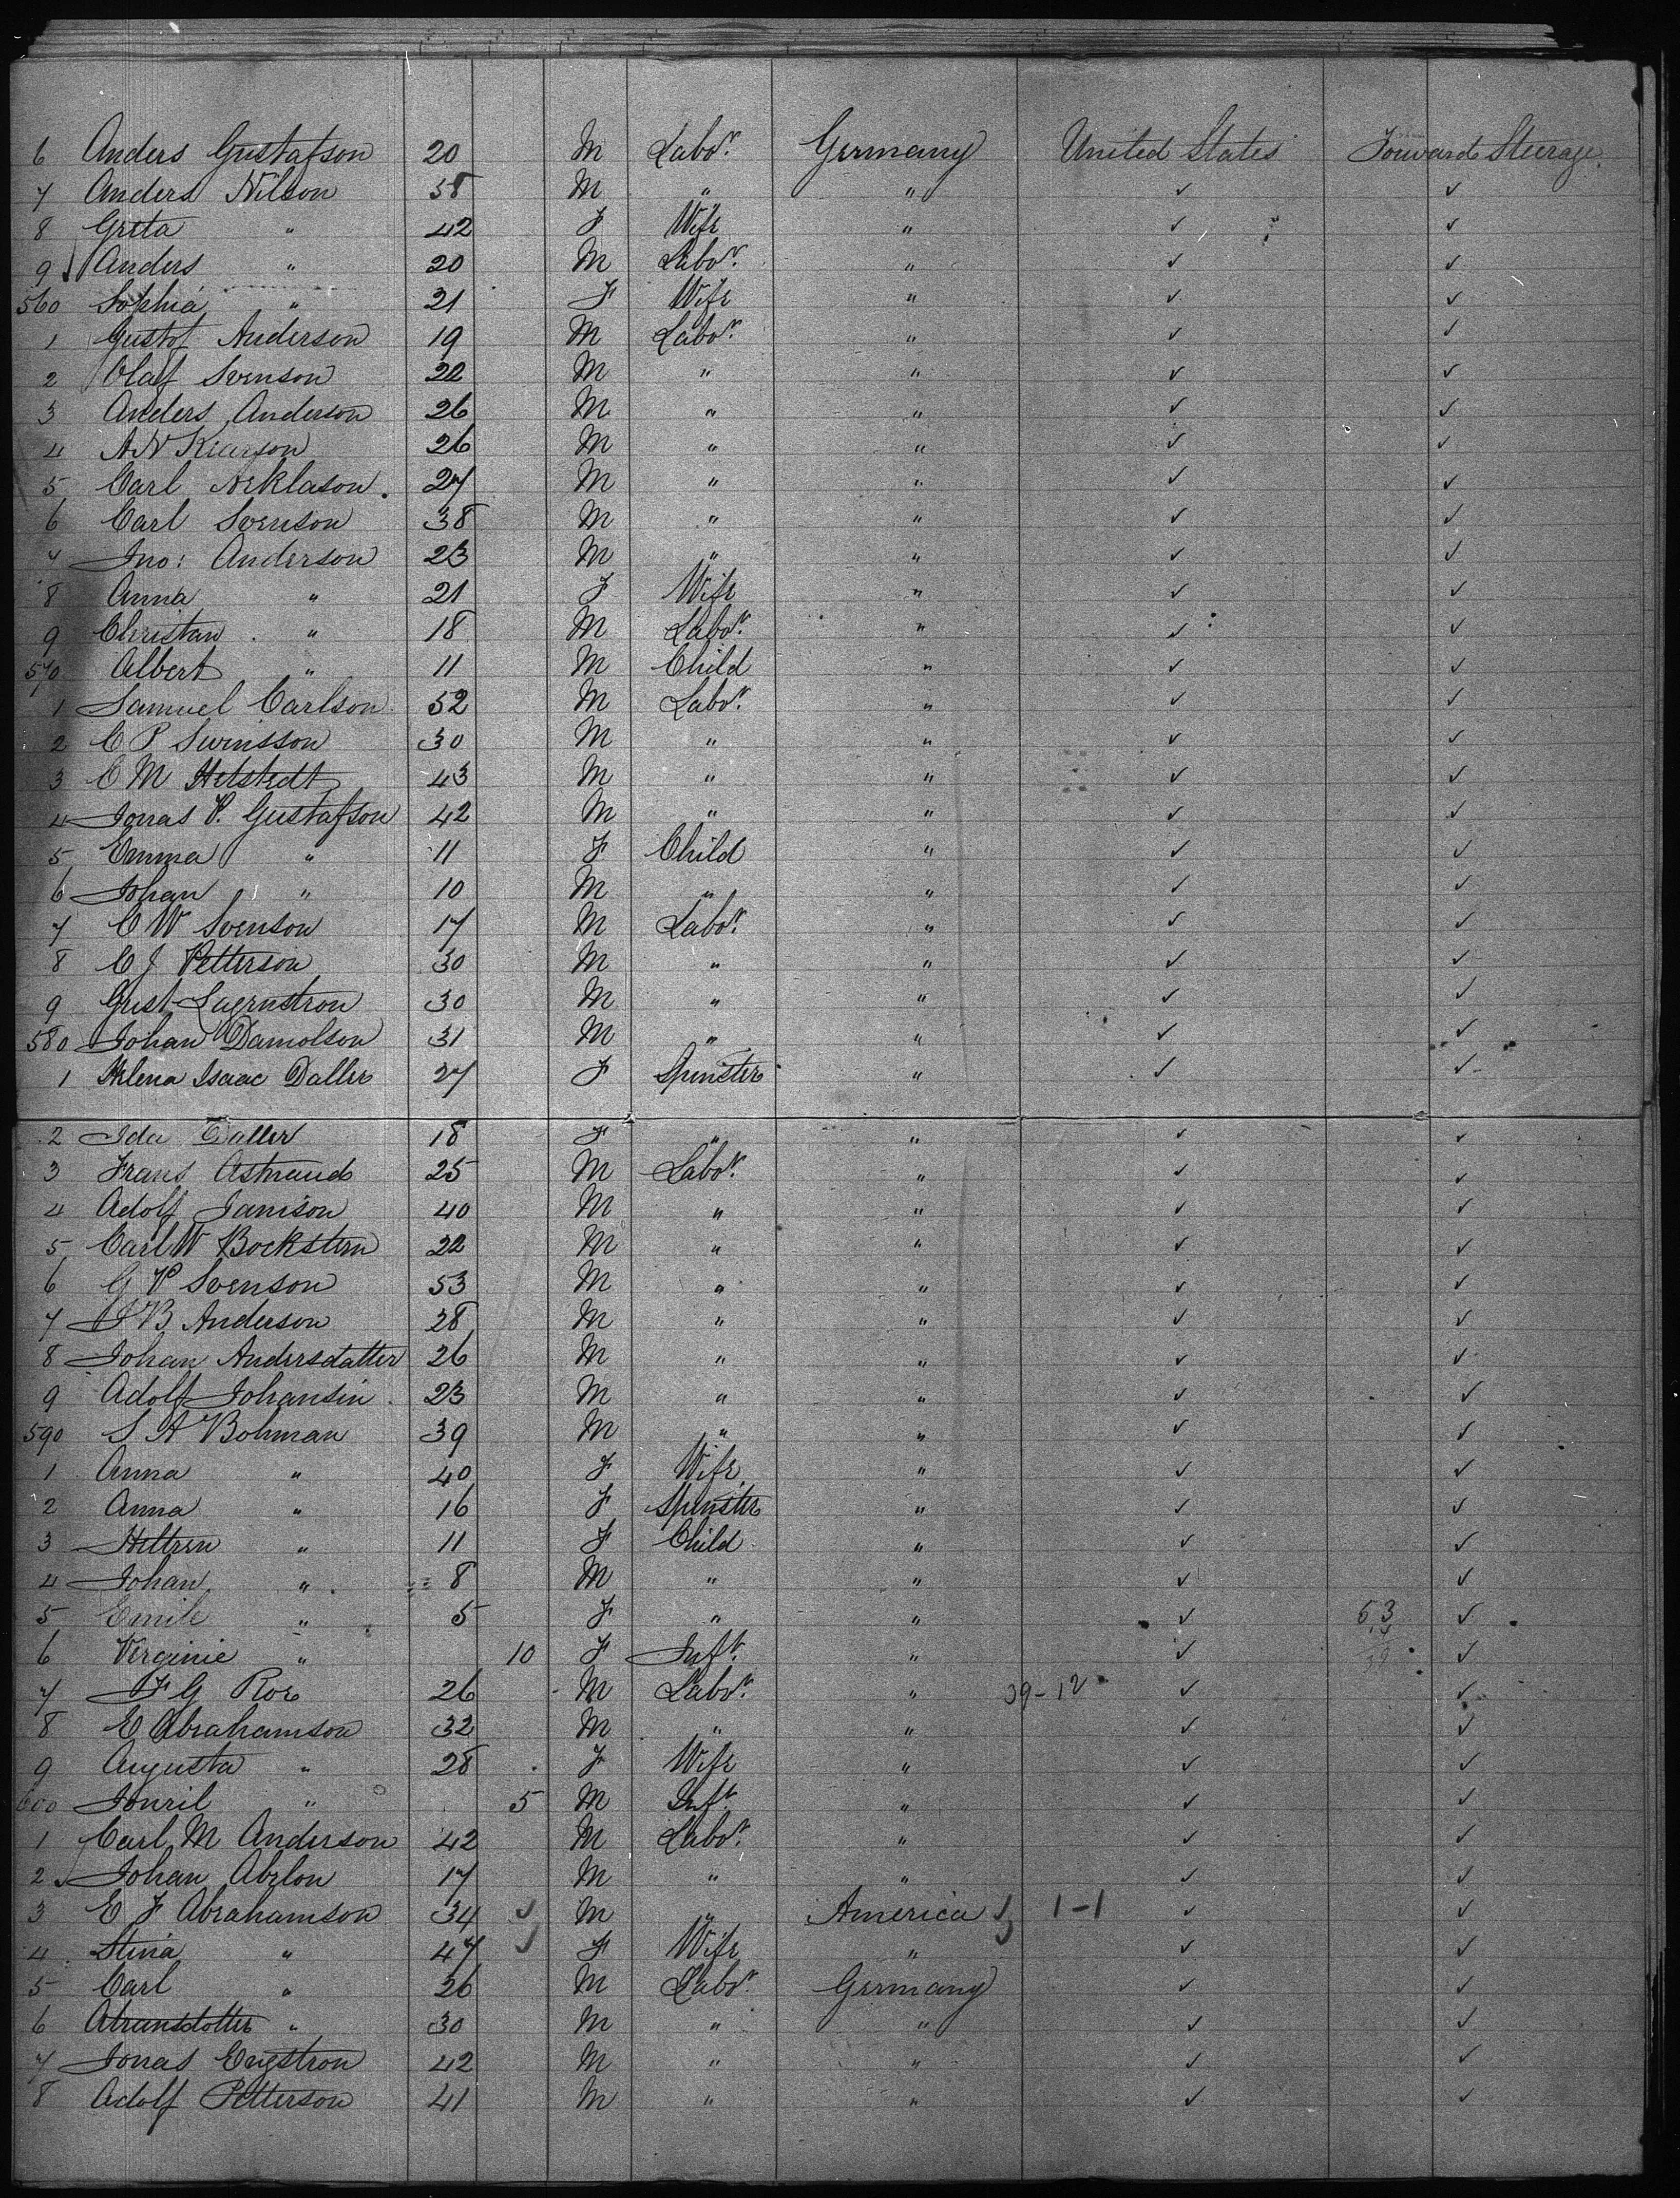 6 Anders Gustafson 20 M Labor. Germany United States Forward Steerage.
7 Anders Nilson 38 M " " ✓ ✓
8 Greta " 42 F Wife " ✓ ✓
9 Anders " 20 M Labor. " ✓ ✓
560 Sophia " 21 F Wife " ✓ ✓
1 Gustof Anderson 19 M Labor. " ✓ ✓
2 Olaf Svenson 22 M " " ✓ ✓
3 Anders Anderson 26 M " " ✓ ✓
4 A N 26 M " " ✓ ✓
5 Carl Neklason. 27 M " " ✓ ✓
6 Carl Svenson 38 M " " ✓ ✓
7 Jno: Anderson 23 M " " ✓ ✓
8 Anna " 21 F Wife " ✓ ✓
9 Christian " 18 M Labor. " ✓ ✓
570 Albert " 11 M Child " ✓ ✓
1 Samuel Carlson 52 M Labor. " ✓ ✓
2 C P Swinsson 30 M " " ✓ ✓
3 C M Helstedt 43 M " " ✓ ✓
4 Jonas P. Gustafson 42 M " " ✓ ✓
5 Emma " 11 F Child " ✓ ✓
6 Johan " 10 M " " ✓ ✓
7 C W Svenson 17 M Labor. " ✓ ✓
8 C J Petterson 30 M " " ✓ ✓
9 Gust Lagrnstron 30 M " " ✓ ✓
580 Johan Damolson 31 M " " ✓ ✓
1 Helena Isaac Daller 27 F Spinster " ✓ ✓
2 Ida Daller 18 F " " ✓ ✓
3 Frans Astrand 25 M Labor. " ✓ ✓
4 Adolf Janison 40 M " " ✓ ✓
5 Carl W Bockstern 22 M " " ✓ ✓
6 G P Svenson 53 M " " ✓ ✓
7 J B Anderson 28 M " " ✓ ✓
8 Johan Andersdatter 26 M " " ✓ ✓
9 Adolf Johansin 23 M " " ✓ ✓
590 S A Bohman 39 M " " ✓ ✓
1 Anna " 40 F Wife " ✓ ✓
2 Anna " 16 F Spinster " ✓ ✓
3 " 11 F Child " ✓ ✓
4 Johan " 8 M " " ✓ ✓
5 Emile " 5 F " " ✓ 53 ✓
6 Virginie " 10 F Inft. " ✓ ✓
7 F G Roe 26 M Labor. " 39-12 ✓ ✓
8 E Abrahamson 32 M " " ✓ ✓
9 Augusta " 28 F Wife " ✓ ✓
600 " 5 M Inft. " ✓ ✓
1 Carl M Anderson 42 M Labor. " ✓ ✓
2 Johan Abelon 17 M " " ✓ ✓
3 E F Abrahamson 34 M " America 1-1 ✓ ✓
4 Stina " 47 F Wife " ✓ ✓
5 Carl " 26 M Labor Germany ✓ ✓
6 " 30 M " " ✓ ✓
7 Jonas Engstron 42 M " " ✓ ✓
8 Adolf Petterson 41 M " " ✓ ✓